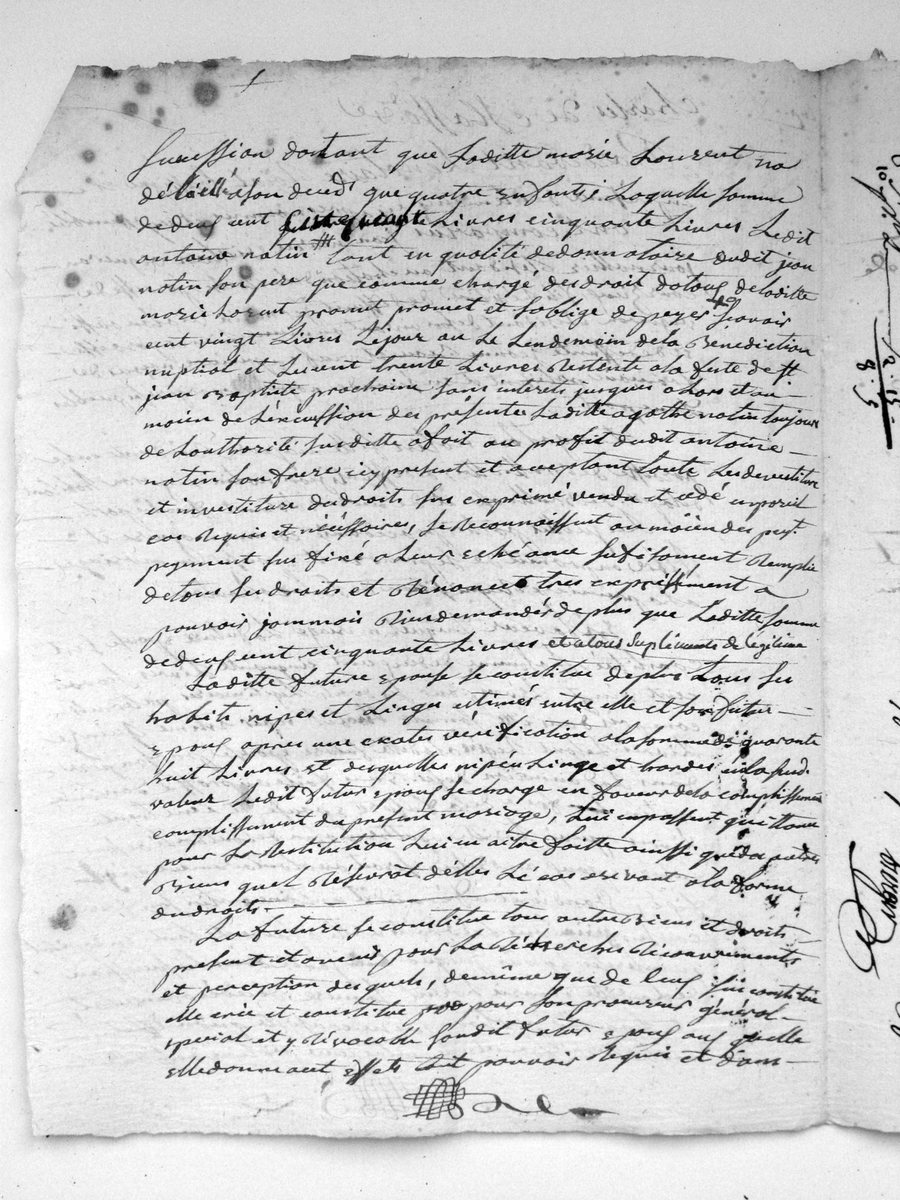 succession dautant que Laditte marie Lourent na
délaissé a son deced que quatre enfants. Laquelle somme
de deux cent cinquante Livres cinquante Livres Ledit
antoine natin tant en qualité de donnataire dudit jean
natin son pere que comme chargé des droit dotaux de laditte
marie Lorent promit promet et soblige de payer scavoir
cent vingt Livres Le jour ou Le Lendemain de la Benediction
nuptial et Les cent trente Livres Restente a la feste de st
jean Baptiste prochaine sans interets jusques alors et au
moien de Lexecussion des présentes Laditte agathe natin toujours
de Lauthorité susditte a fait au profit dudit antoine
natin son frere icy present et aceptant toute Les devestiture
et investiture des droits sus exprimé vendu et cédé en pareil
cas Requis et nécéssaires, se Reconnaissent au moïen des pest.
payement sus fixé a Leur echéance sufisament Remplie
de tous ses droits et Rénonce tres expressément a
pouvoir jammais Rien demander de plus que Laditte somme
de deux cent cinquante Livres et a tous supléments de Légitime
Laditte future epouse se constitue de plus tous ses
habits nipes et Linges estimés entre elle et son futur
epoux apres une exates vérification a la somme de quarante
huit Livres et desquelles nipes Linge et hardes en la susd.
valeur Ledit futur epoux se charge en faveur de la complissement
complissement du présent mariage, Lui en passent quittance
pour La Restitution Lui en aitre faitte ainssi que des autres
Biens quel Réserrat d'elles Le cas arivant a la forme
du droits.
La future se constitue tous autre Biens et droits
present et avenir pour La Recherches Recouvrements
et perception des quels, de même que de ceux sus constitue
elle crée et constitue pour son procureur général
special et yrévocable sondit futur epoux auquel elle
elle donne a cet effets tout pouvoir Requis et dans